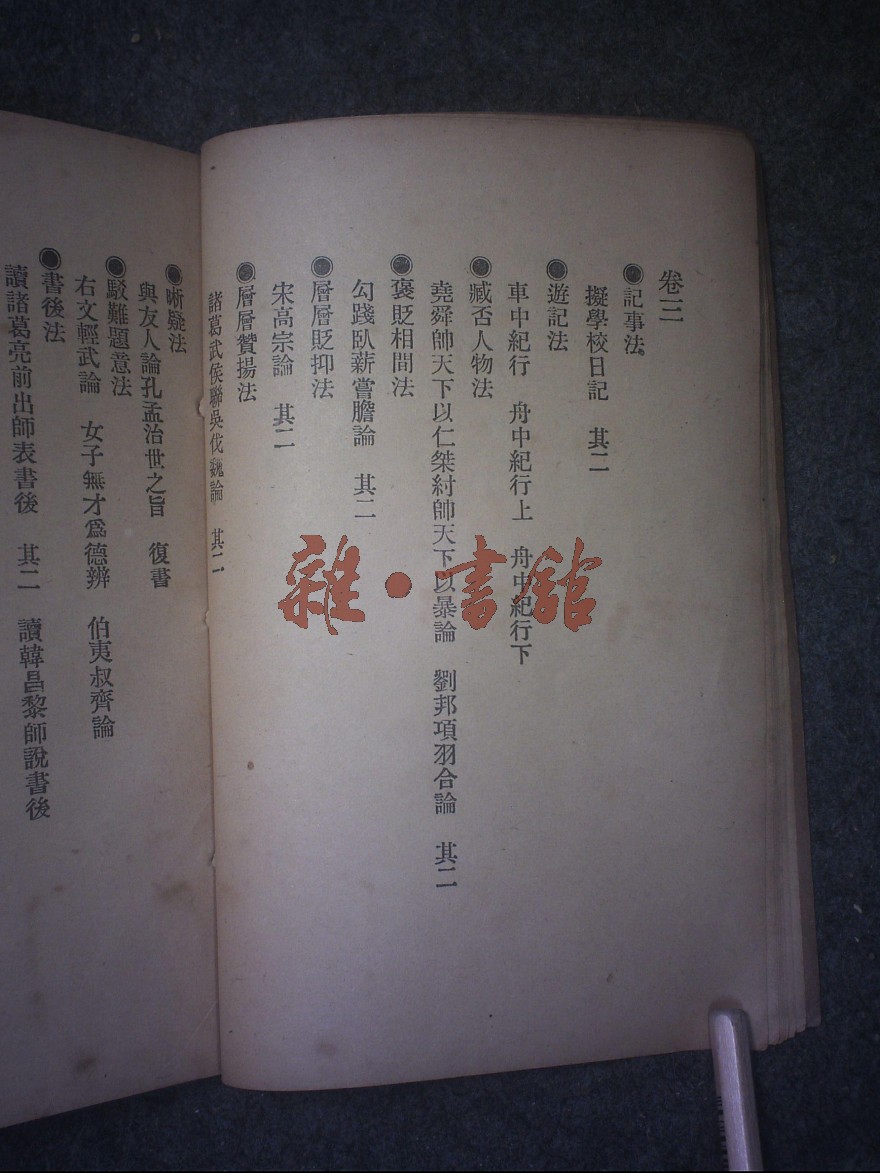 卷三
◉記事法
擬學校日記　其二
◉遊記法
車中紀行　舟中紀行上　舟中紀行下
◉臧否人物法
堯舜帥天下以仁桀紂帥天下以暴論　劉邦項羽合論　其二
◉褒貶相間法
勾踐臥薪嘗膽論　其二
◉層層貶抑法
宋高宗論　其二
◉層層贊揚法
諸葛武侯聯吳伐魏論　其二
◉晰疑法
與友人論孔孟治世之旨　復書
◉駁難題意法
右文輕武論　女子無才爲德辨　伯夷叔齊論
◉書後法
讀諸葛亮前出師表書後　其二　讀韓昌黎師說書後
雜·書館